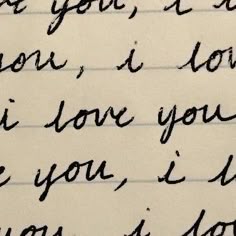 you, i
you, i lov
i love you
you, i
you i lo